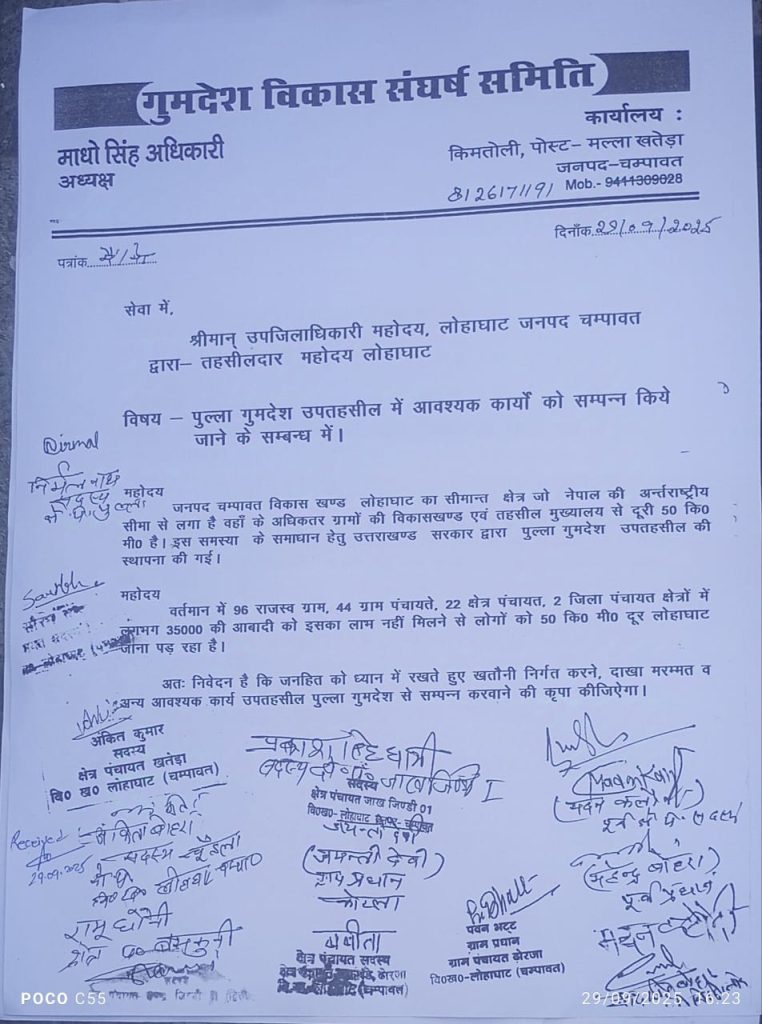 गुमदेश विकास संघर्ष समिति
माधो सिंह अधिकारी
अध्यक्ष
कार्यालय :
किमतोली, पोस्ट– मल्ला खतेड़ा
जनपद–चम्पावत
8126171191 Mob.- 9411309028
पत्रांक
दिनाँक 29/09/2025
सेवा में,
श्रीमान् उपजिलाधिकारी महोदय, लोहाघाट जनपद चम्पावत
द्वारा– तहसीलदार महोदय लोहाघाट
विषय – पुल्ला गुमदेश उपतहसील में आवश्यक कार्यो को सम्पन्न किये
जाने के सम्बन्ध में।
Nirmal
निर्मल नाथ
सदस्य
महोदय
जनपद चम्पावत विकास खण्ड लोहाघाट का सीमान्त क्षेत्र जो नेपाल की अर्न्तराष्ट्रीय
सीमा से लगा है वहाँ के अधिकतर ग्रामों की विकासखण्ड एवं तहसील मुख्यालय से दूरी 50 कि0
मी0 है। इस समस्या के समाधान हेतु उत्तराखण्ड सरकार द्वारा पुल्ला गुमदेश उपतहसील की
स्थापना की गई।
महोदय
वर्तमान में 96 राजस्व ग्राम, 44 ग्राम पंचायते, 22 क्षेत्र पंचायत, 2 जिला पंचायत क्षेत्रों में
लगभग 35000 की आबादी को इसका लाभ नहीं मिलने से लोगों को 50 कि0 मी0 दूर लोहाघाट
जाना पड़ रहा है।
अतः निवेदन है कि जनहित को ध्यान में रखते हुए खतौनी निर्गत करने, दाखा मरम्मत व
अन्य आवश्यक कार्य उपतहसील पुल्ला गुमदेश से सम्पन्न करवाने की कृपा कीजिऐगा।
अंकित कुमार
सदस्य
क्षेत्र पंचायत खतेड़ा
वि0 ख0 लोहाघाट (चम्पावत)
सदस्य
क्षेत्र पंचायत जाख जिण्डी 01
वि0ख0-लोहाघाट
Received
29.09.2025
सदस्य
(जयन्ती देवी)
ग्राम प्रधान
कोयला
(महेन्द्र बोहरा)
पूर्व प्रधान
बबीता
क्षेत्र पंचायत सदस्य
पवन भट्ट
ग्राम प्रधान
ग्राम पंचायत ढोरजा
वि0ख0-लोहाघाट (चम्पावत)
POCO C55
29/09/2025 16:23